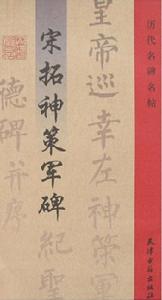 历代名碑名帖
皇帝巡幸左神策军
宋拓神策军碑
纪圣
德碑并序
天津古籍出版社